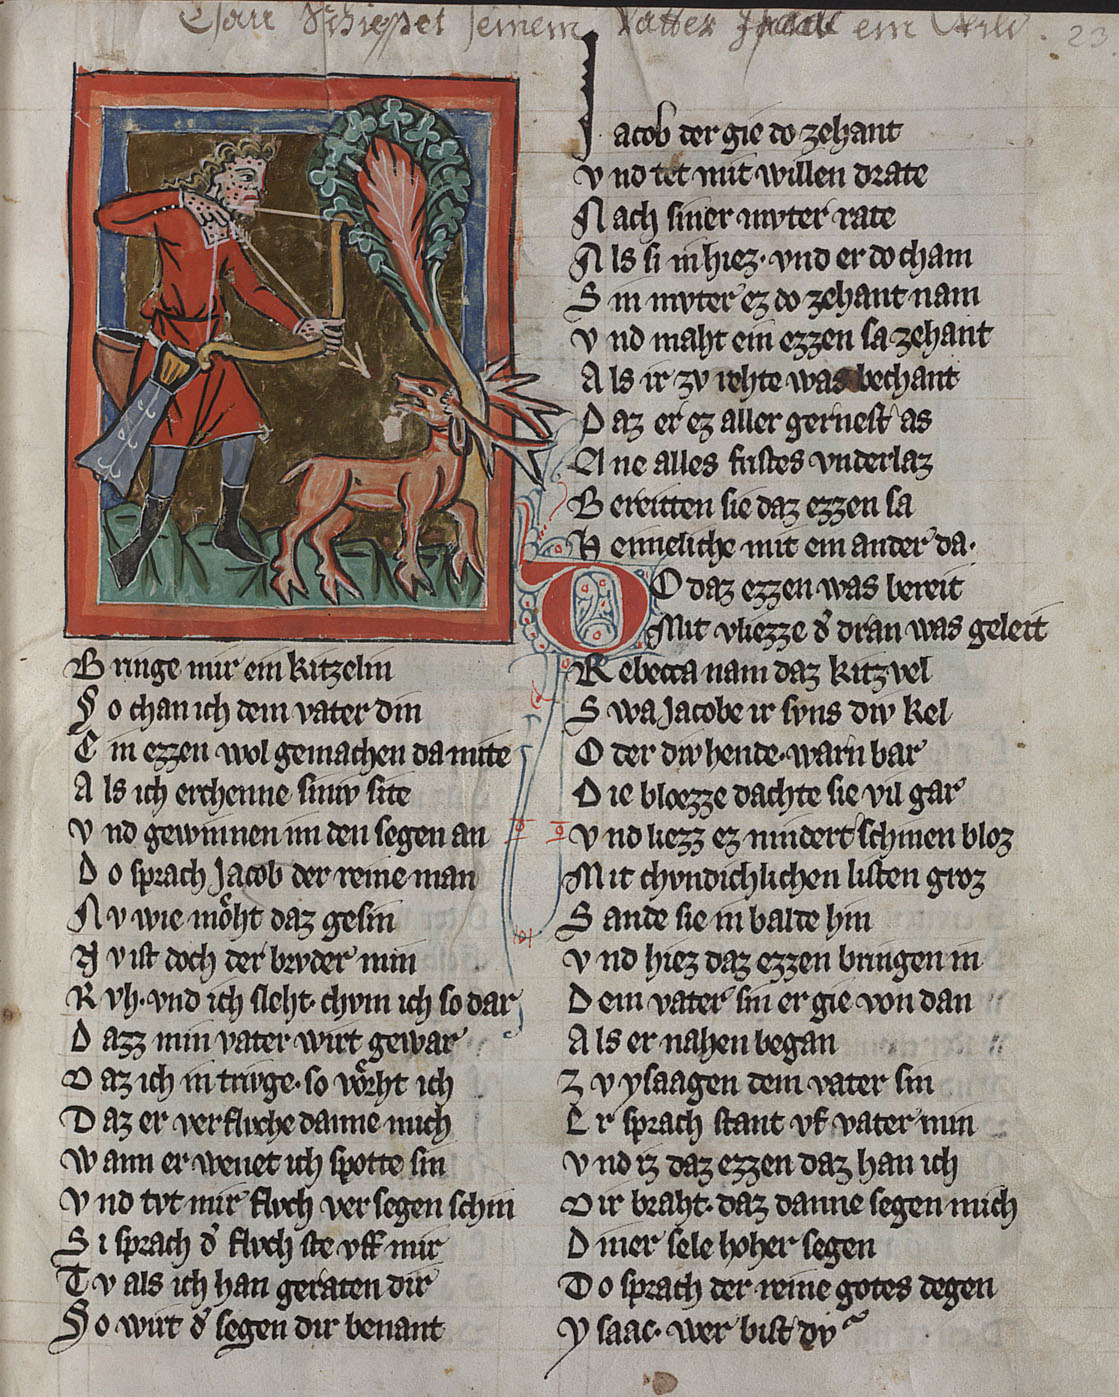 Esau Schiesset seinem Vatter Jacob ein Wild. 23
Bringe mir ein kitzelin
So chan ich dem vater din
Ein ezzen wol gemachen da mite
Als ich erchenne siniv site
Vnd gewinnen im den segen an
Do sprach Jacob der reine man
Nv wie moͤht daz gesin
Nv ist doch der brvder min
Rvh· vnd ich sleht· chvm ich so dar
Dazz min vater wirt gewar
Daz ich in trivge· so voͤrht ich
Daz er verflvche danne mich
Wann er wenet ich spotte sin
Vnd tvt mir flvch ver segen schin
Si sprach d' flvch ste vff mir
Tv als ich han geraten dir
So wirt d' segen dir benant
Jacob der gie do zehant
Vnd tet mit willen drate
Nach siner mvter rate
Als si in hiez· vnd er do cham
Sin mvter ez do zehant nam
Vnd maht ein ezzen sa zehant
Als ir zv rehte was bechant
Daz er ez aller gernest as
Ane alles fristes vnderlaz
Bereitten sie daz ezzen sa
Henneliche mit ein ander da·
Do daz ezzen was bereit
Mit vliezze d' dran was geleit
Rebecca nam daz kitzvel
Swa Jacobe ir svns div kel
Oder div hende· warn bar
Die bloezze dachte sie vil gar
Vnd liezz ez nindert schinen bloz
Mit chvndichlichen listen groz
Sande sie in balde hin
Vnd hiez daz ezzen bringen in
Dem vater sin er gie von dan
Als er nahen began
Zv ysaagen dem vater sin
Er sprach stant vf vater min
Vnd iz daz ezzen daz han ich
Dir braht· daz danne segen mich
Diner sele hoher segen
Do sprach der reine gotes degen
Ysaac· wer bist dv